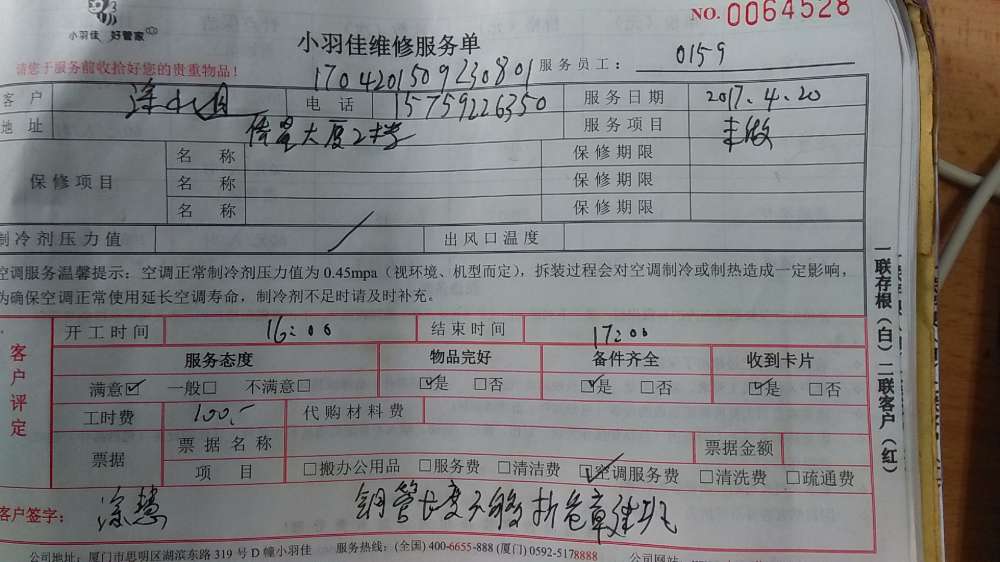 小羽佳 好管家
NO.0064528
小羽佳维修服务单
请您于服务前收拾好您的贵重物品！
1704201509230801
服务员工： 0159
客户 涂小姐 电话 15759226350 服务日期 2017.4.20
地址 大厦2# 服务项目
保修项目 名称 保修期限
名称 保修期限
名称 保修期限
制冷剂压力值 / 出风口温度
空调服务温馨提示：空调正常制冷剂压力值为0.45mpa（视环境、机型而定），拆装过程会对空调制冷或制热造成一定影响，
为确保空调正常使用延长空调寿命，制冷剂不足时请及时补充。
客户评定
开工时间 16:00 结束时间 17:00
服务态度 物品完好 备件齐全 收到卡片
满意☑ 一般□ 不满意□ ☑是 □否 ☑是 □否 ☑是 □否
工时费 100.- 代购材料费
票据 票据名称 票据金额
项目 □搬办公用品 □服务费 □清洁费 ☑空调服务费 □清洗费 □疏通费
客户签字： 涂慧 铜管长度不够
公司地址：厦门市思明区湖滨东路319号D幢小羽佳 服务热线：(全国) 400-6655-888 (厦门) 0592-5178888 公司网站：
一联存根（白）二联客户（红）